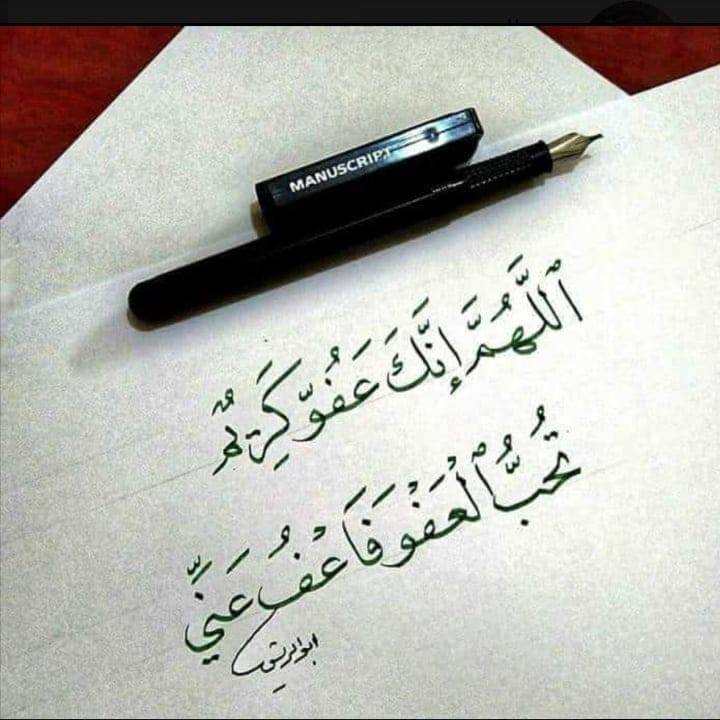 MANUSCRIPT
ٱللَّهُمَّ إِنَّكَ عَفُوٌّ كَرِيمٌ
تُحِبُّ ٱلْعَفْوَ فَاعْفُ عَنِّي